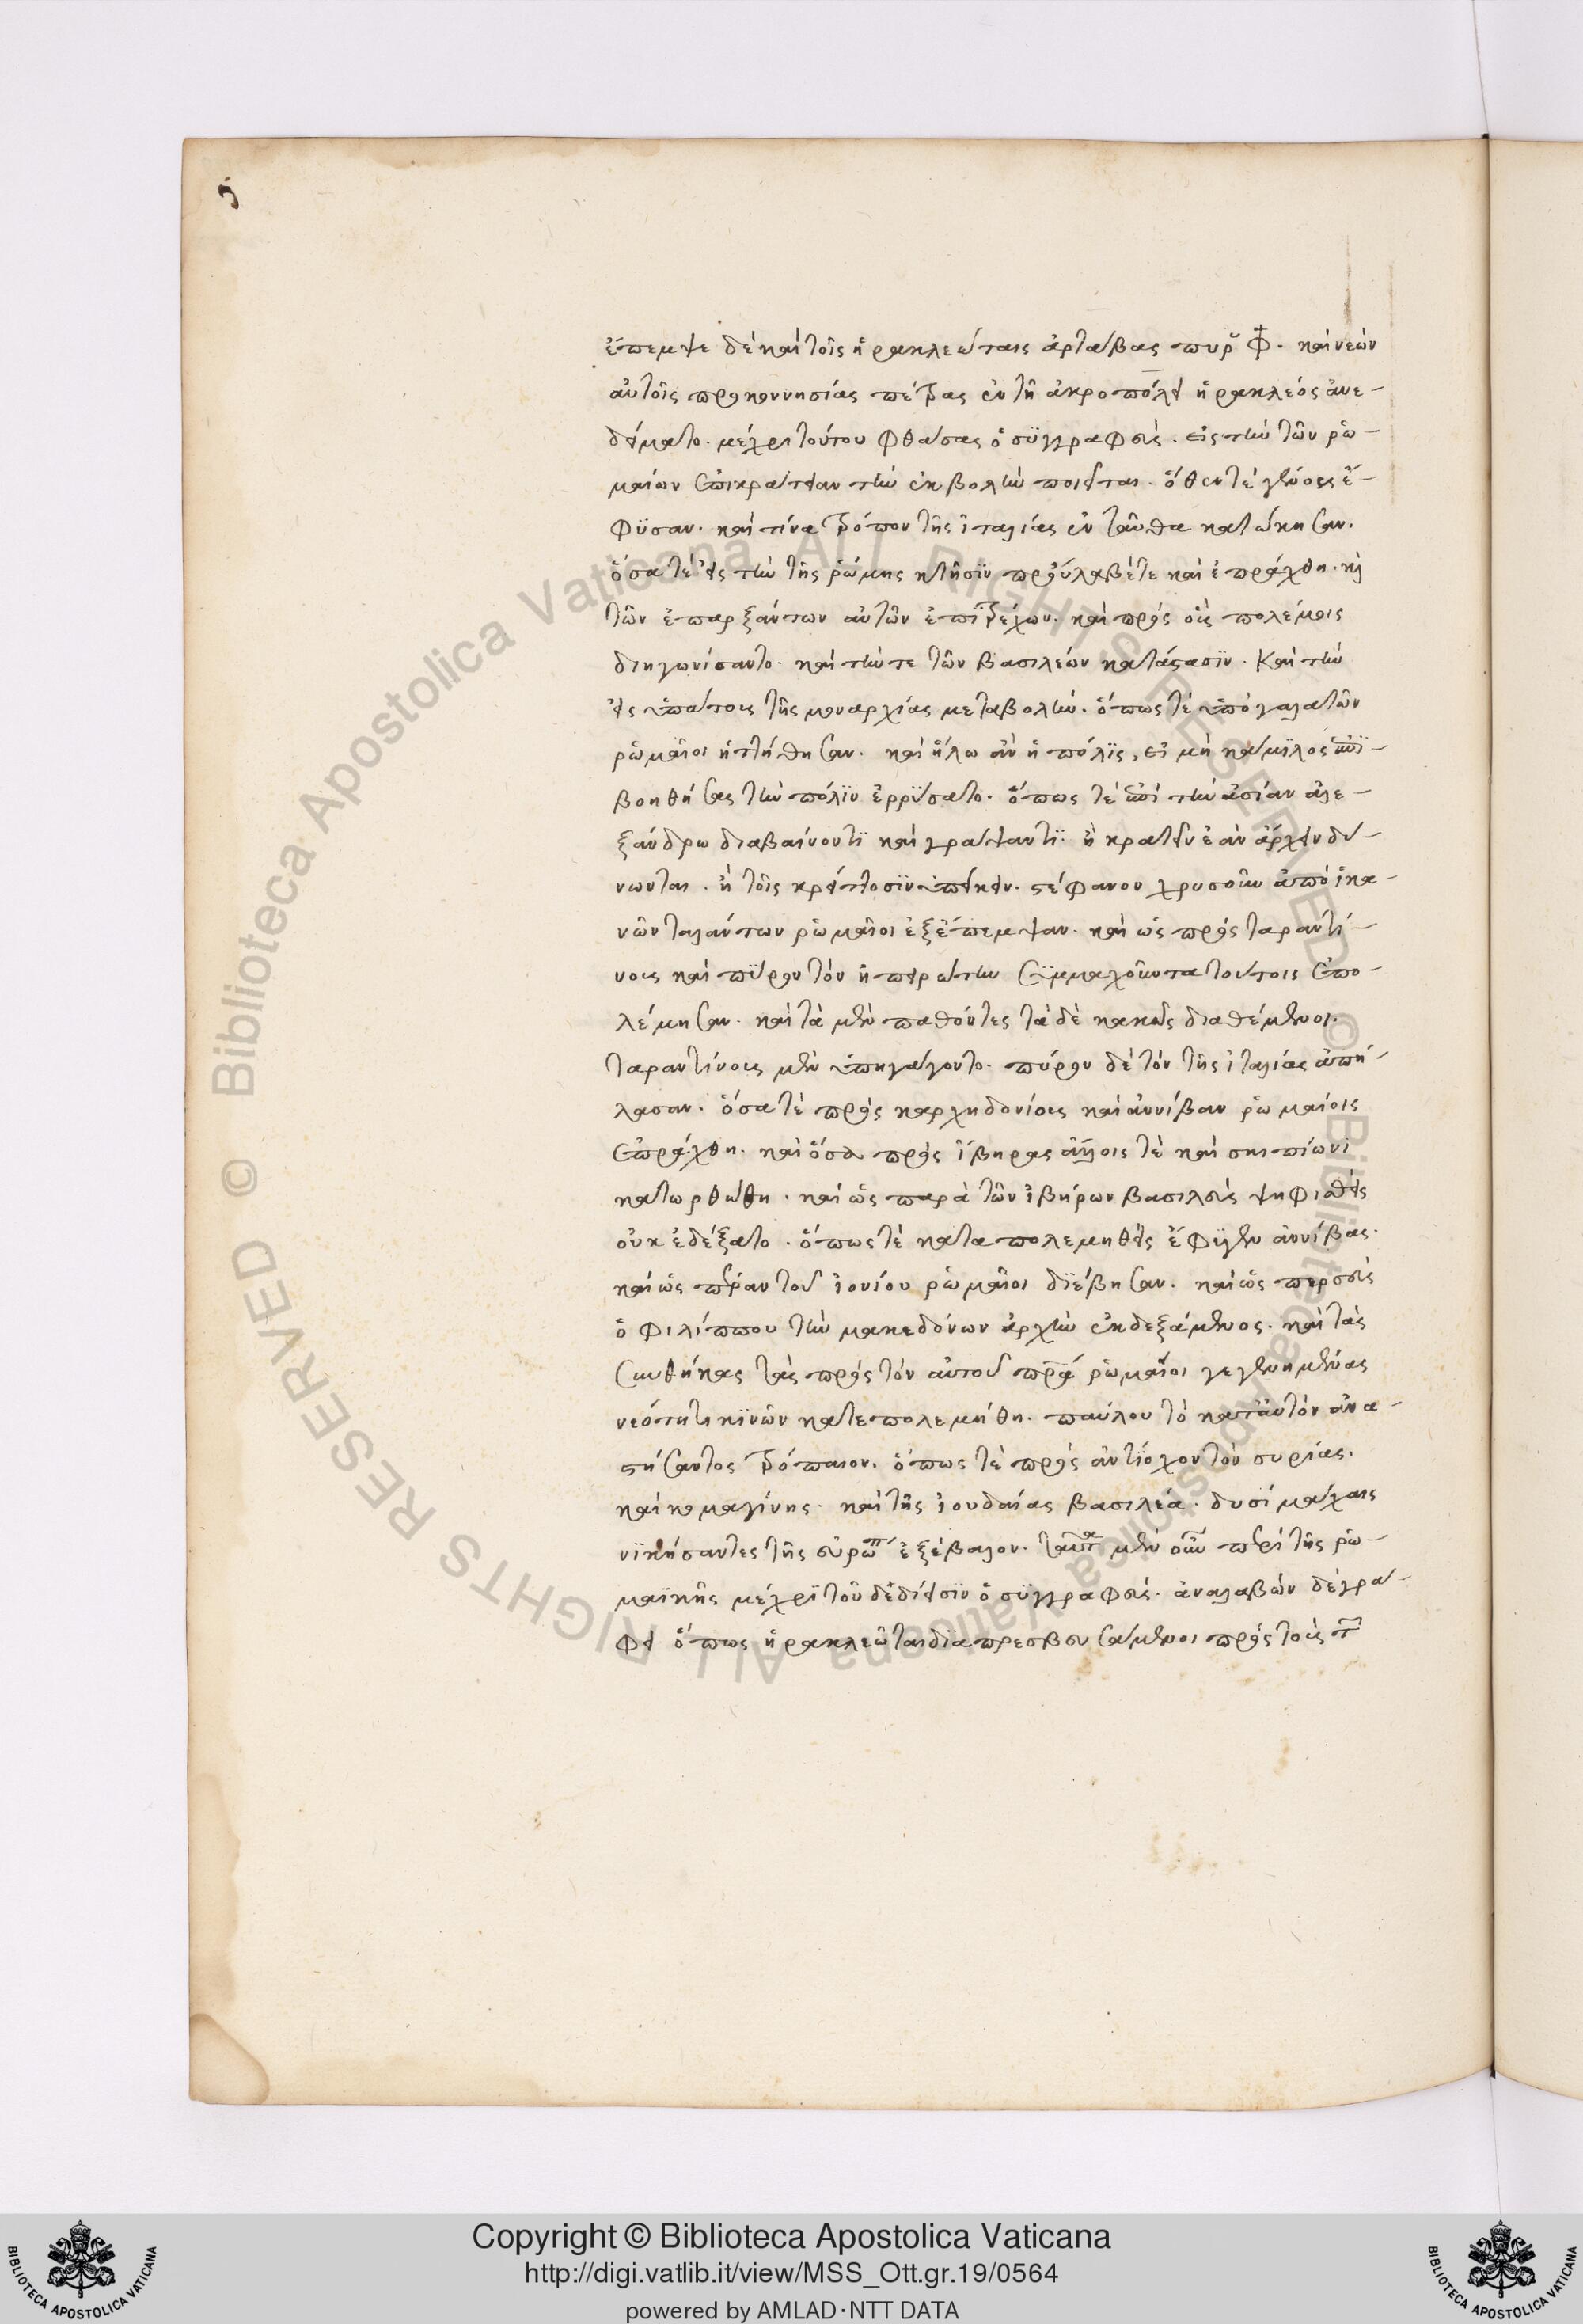 ἔπεμψε δὲ καὶ τοῖς ἡρακλεώταις ἀρτάβας πυρ φ. καὶ νεὼν
αὐτοῖς προκοννησίας πέτρας ἐν τῆ ἀκροπόλει ἡρακλέος ἀνε-
δείματο. μέχρι τούτου φθάσας ὁ σϋγγραφεὺς. εἰς τὴν τῶν ῥω-
μαίων ἐπικράτειαν τὴν ἐκβολὴν ποιεῖται. ὅθεν τὲ γένους ἔ-
φϋσαν. καὶ τίνα τρόπον τῆς ἰταλίας ἐνταῦθα κατώκησαν.
ὅσα τὲ εἰς τὴν τῆς ῥώμης κτῆσϊν προὔλαβέ τε καὶ ἐπράχθη. κỳ
τῶν ἐπαρξάντων αὐτῶν ἐπιτρέχων. καὶ πρὸς οὓς πολέμοις
διηγωνίσαντο. καὶ τήν τε τῶν βασιλεών κατάστασϊν. καὶ τὴν
εἰς ὑπάτους τῆς μοναρχίας μεταβολήν. ὅπως τὲ ὑπὸ γαλατῶν
ῥωμαῖοι ἡττήθησαν. καὶ ἥλω ἂν ἡ πόλϊς, εἰ μὴ κάμϊλος ἐπϊ-
βοηθήσας τὴν πόλϊν ἐρρϋσατο. ὅπως τὲ ἐπὶ τὴν ἀσίαν ἀλε-
ξάνδρω διαβαίνοντϊ καὶ γράψαντϊ. ἢ κρατεῖν ἐὰν ἄρχειν δύ-
νωνται. ἢ τοῖς κρείττοσϊν ὑπείκειν. στέφανον χρυσοῦν ἀπὸ ἱκα-
νῶν ταλάντων ῥωμαῖοι ἐξέπεμψαν. καὶ ὡς πρὸς ταραντί-
νους καὶ πϋρον τὸν ἠπειρώτην σϋμμαχοῦντα τούτοις ἐπο-
λέμησαν. καὶ τὰ μὲν παθόντες τὰ δὲ κακῶς διαθέμενοι.
ταραντίνους μὲν ὑπηγάγοντο. πύρον δὲ τὸν τῆς ἰταλίας ἀπή-
λασαν. ὅσα τὲ πρὸς καρχηδονίους καὶ ἀννίβαν ῥωμαίοις
ἐπράχθη. καὶ ὅσα πρὸς ἴβηρας ἄλλοις τὲ καὶ σκιπίωνι
κατωρθώθη. καὶ ὡς παρὰ τῶν ἰβήρων βασιλεὺς ψηφισθεὶς
οὐκ ἐδέξατο. ὅπως τὲ καταπολεμηθεὶς ἔφϋγεν ἀννίβας.
καὶ ὡς πέραν τοῦ ἰονίου ῥωμαῖοι δϊέβησαν. καὶ ὡς περσεὺς
ὁ φιλίππου τὴν μακεδόνων ἀρχὴν ἐκδεξάμενος. καὶ τὰς
συνθήκας τὰς πρὸς τὸν αὐτοῦ πρα ῥωμαίοι γεγενημένας
νεότητι κϊνῶν κατεπολεμήθη. παύλου τὸ κατ' αὐτὸν ἀνα-
στήσαντος τρόπαιον. ὅπως τὲ πρὸς ἀντίοχον τὸν συρίας.
καὶ κομαγίνης. καὶ τῆς ἰουδαίας βασιλέα. δυσὶ μάχαις
νϊκήσαντες τῆς εὐρωπ ἐξέβαλον. ταῦτα μὲν οὖν περὶ τῆς ῥω-
μαϊκῆς μέχρϊ τοῦδε δίεισϊν ὁ σϋγγραφεὺς. ἀναλαβὼν δὲ γρά-
φει ὅπως ἡρακλεῶται δϊαπρεσβευσάμενοι πρὸς τοὺς τ